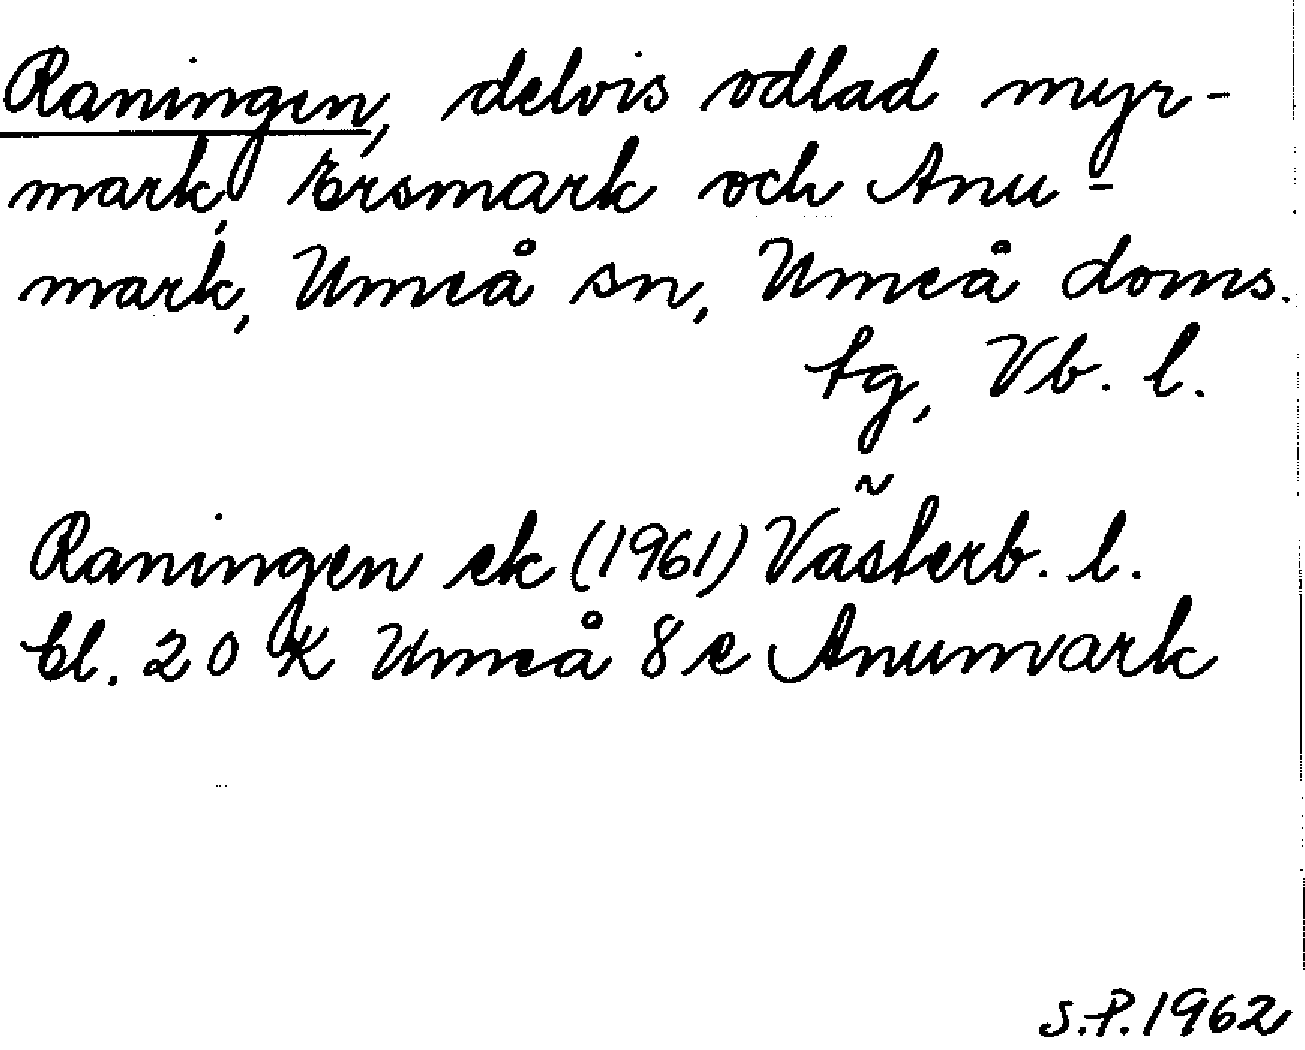 Raningen, delvis odlad myr-
mark, Ersmark och Anu-
mark, Umeå sn, Umeå doms.
tg, Vb. l.
Raningen ek (1961) Västerb. l.
bl. 20 K Umeå 8 c Anumark
S.P. 1962